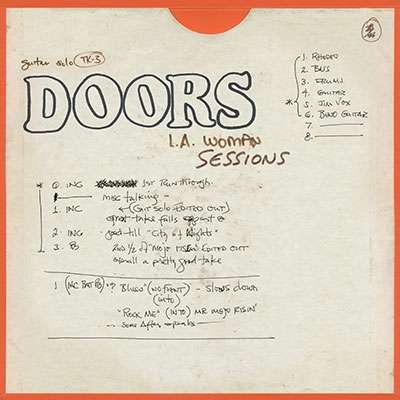 guitar solo TK-3
DOORS
L.A. WOMAN
SESSIONS
1. RHODES
2. BASS
3. DRUMS
4. GUITAR
* 5. JIM VOX
6. BAND GUITAR
7.
8.
* 0. INC 1ST Run through.
misc talking -
1. INC ← (GUIT SOLO EDITED OUT)
take falls apart
2. INC good till "City of Nights"
3. 2ND 1/2 of "MOJO RISIN" EDITED OUT
overall a pretty good take
1 ? BLUES" (NO FRONT) - Slows down
(INTO)
"ROCK ME" (INTO) MR MOJO RISIN'